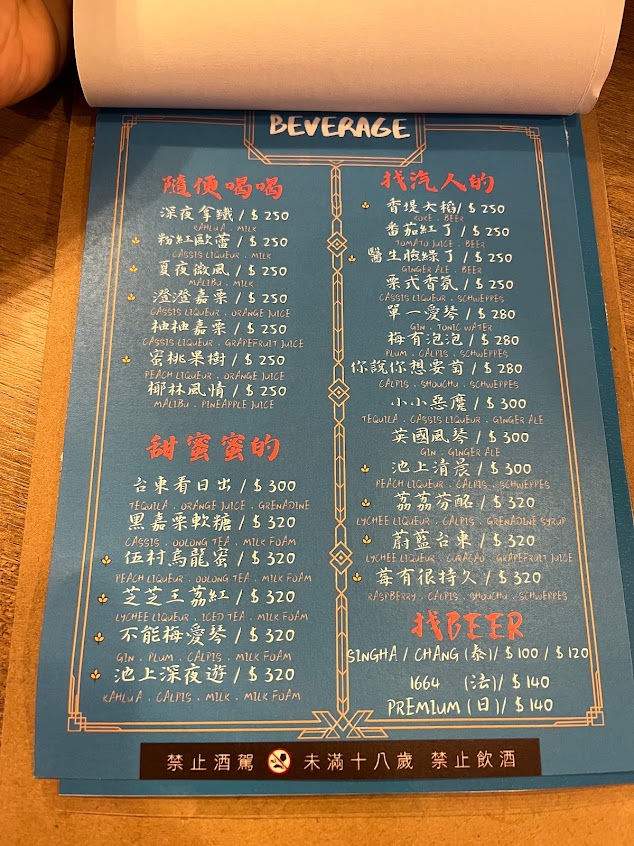 BEVERAGE
隨便喝喝
深夜拿鐵 / $ 250
KAHLUA . MILK
粉紅歐蕾 / $ 250
CASSIS LIQUEUR . MILK
夏夜微風 / $ 250
MALIBU . MILK
澄澄嘉栗 / $ 250
CASSIS LIQUEUR . ORANGE JUICE
柚柚嘉栗 / $ 250
CASSIS LIQUEUR . GRAPEFRUIT JUICE
蜜桃果樹 / $ 250
PEACH LIQUEUR . ORANGE JUICE
椰林風情 / $ 250
MALIBU . PINEAPPLE JUICE
甜蜜蜜的
台東看日出 / $ 300
TEQUILA . ORANGE JUICE . GRENADINE
黑嘉栗軟糖 / $ 320
CASSIS . OOLONG TEA . MILK FOAM
伍村烏龍蜜 / $ 320
PEACH LIQUEUR . OOLONG TEA . MILK FOAM
芝芝王荔紅 / $ 320
LYCHEE LIQUEUR . ICED TEA . MILK FOAM
不能梅愛琴 / $ 320
GIN . PLUM . CALPIS . MILK FOAM
池上深夜遊 / $ 320
KAHLUA . CALPIS . MILK . MILK FOAM
找汽人的
香堤大稻/ $ 250
KOKE . BEER
番茄紅了 / $ 250
TOMATO JUICE . BEER
醫生臉綠了 / $ 250
GINGER ALE . BEER
栗式香氛 / $ 250
CASSIS LIQUEUR . SCHWEPPES
單一愛琴 / $ 280
GIN . TONIC WATER
梅有泡泡 / $ 280
PLUM . CALPIS . SCHWEPPES
你說你想要萄 / $ 280
CALPIS . SHOUCHU . SCHWEPPES
小小惡魔 / $ 300
TEQUILA . CASSIS LIQUEUR . GINGER ALE
英國風琴 / $ 300
GIN . GINGER ALE
池上清晨 / $ 300
PEACH LIQUEUR . CALPIS . SCHWEPPES
荔荔芬酩 / $ 320
LYCHEE LIQUEUR . CALPIS . GRENADINE SYRUP
蔚藍台東 / $ 320
LYCHEE LIQUEUR . CURAÇAO . GRAPEFRUIT JUICE
莓有很持久 / $ 320
RASPBERRY . CALPIS . SHOUCHU . SCHWEPPES
找BEER
SINGHA / CHANG (泰)/ $ 100 / $ 120
1664 (法)/ $ 140
PREMIUM (日)/ $ 140
禁止酒駕 未滿十八歲 禁止飲酒